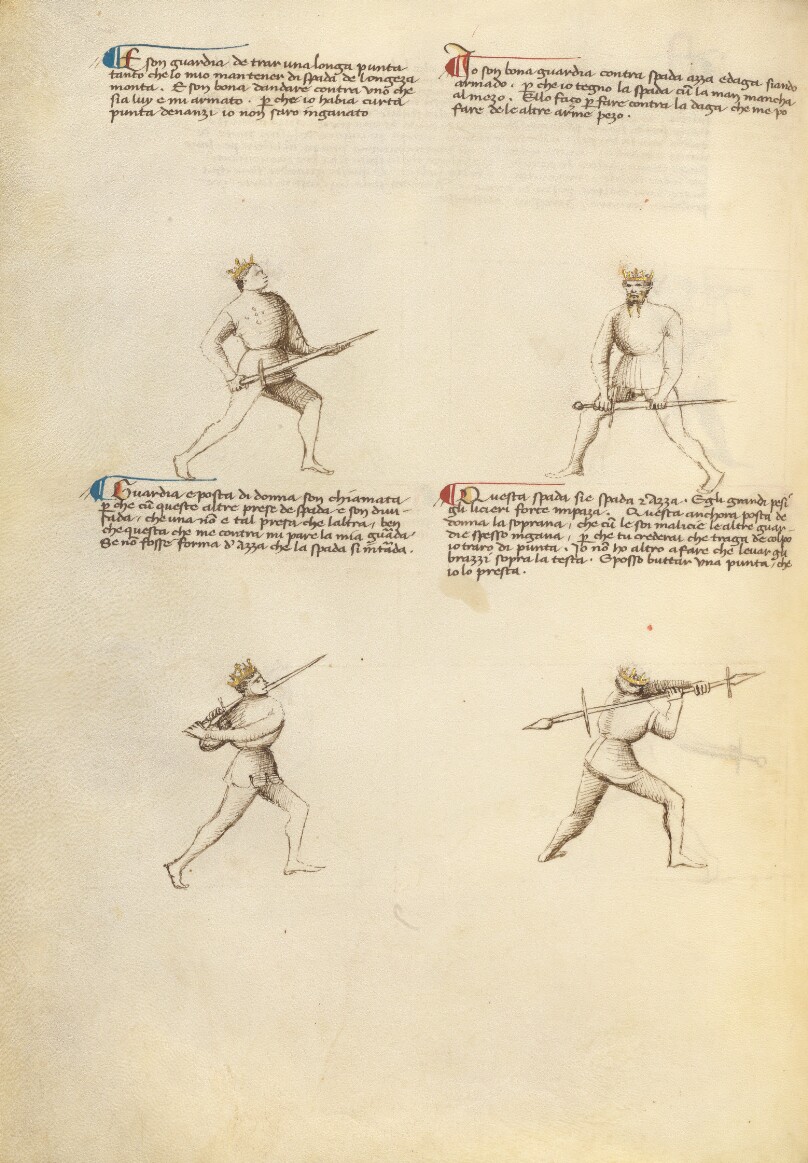 E son guardia de trar una longa punta
tanto che lo mio mantener di spada de longeza
monta. E son bona dandare contra uno che
sia luy e mi armato. p che io habia curta
punta denanzi io non saro inganato
Io son bona guardia contra spada azza e daga siando
armado. p che io tegno la spada cū la man mancha
al mezo. Ello faço p fare contra la daga che me po
fare de le altre arme pezo.
Guardia e posta di donna son chiamata
p che cū queste altre prese de spada e son divi-
sada, che una nō e tal presa che laltra, ben
che questa che me contra mi pare la mia guāda
Se nō fosse forma d' azza che la spada si intāda.
Questa spada sie spada e Azza. E gli grandi pesi
gli liçieri forte impaza. Questa anchora posta de
donna la soprana, che cū le soi malicie le altre guar-
die spesso ingana, p che tu crederai che traga de colpo
io traro di punta. Io nō ho altro a fare che levar gli
brazzi sopra la testa. E posso buttar una punta, che
io lo presta.